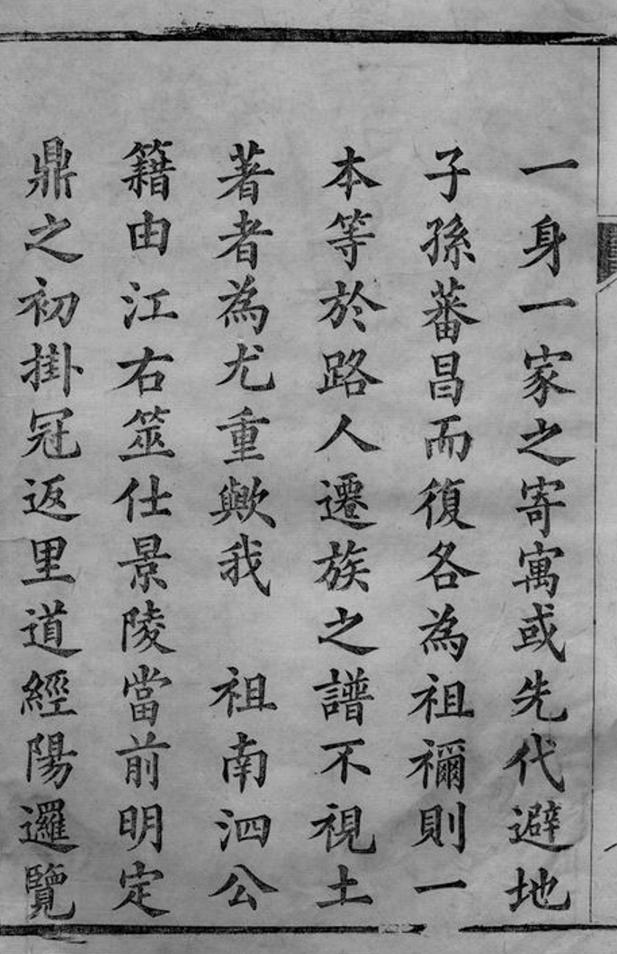 一身一家之寄寓或先代避地
子孫蕃昌而復各為祖禰則一
本等於路人遷族之譜不視土
著者為尤重歟我　祖南泗公
籍由江右筮仕景陵當前明定
鼎之初掛冠返里道經陽邏覽